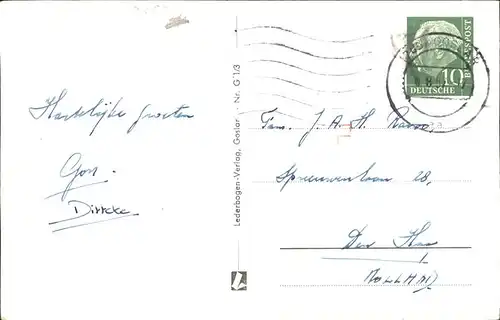 Hartelijke groeten
Gon.
Dirkske
Lederbogen-Verlag, Goslar Nr. G 1/3
10
DEUTSCHE
BUNDESPOST
Fam. J. A. H.
Spreeuwenlaan 28.
Den Haag
HOLLAND